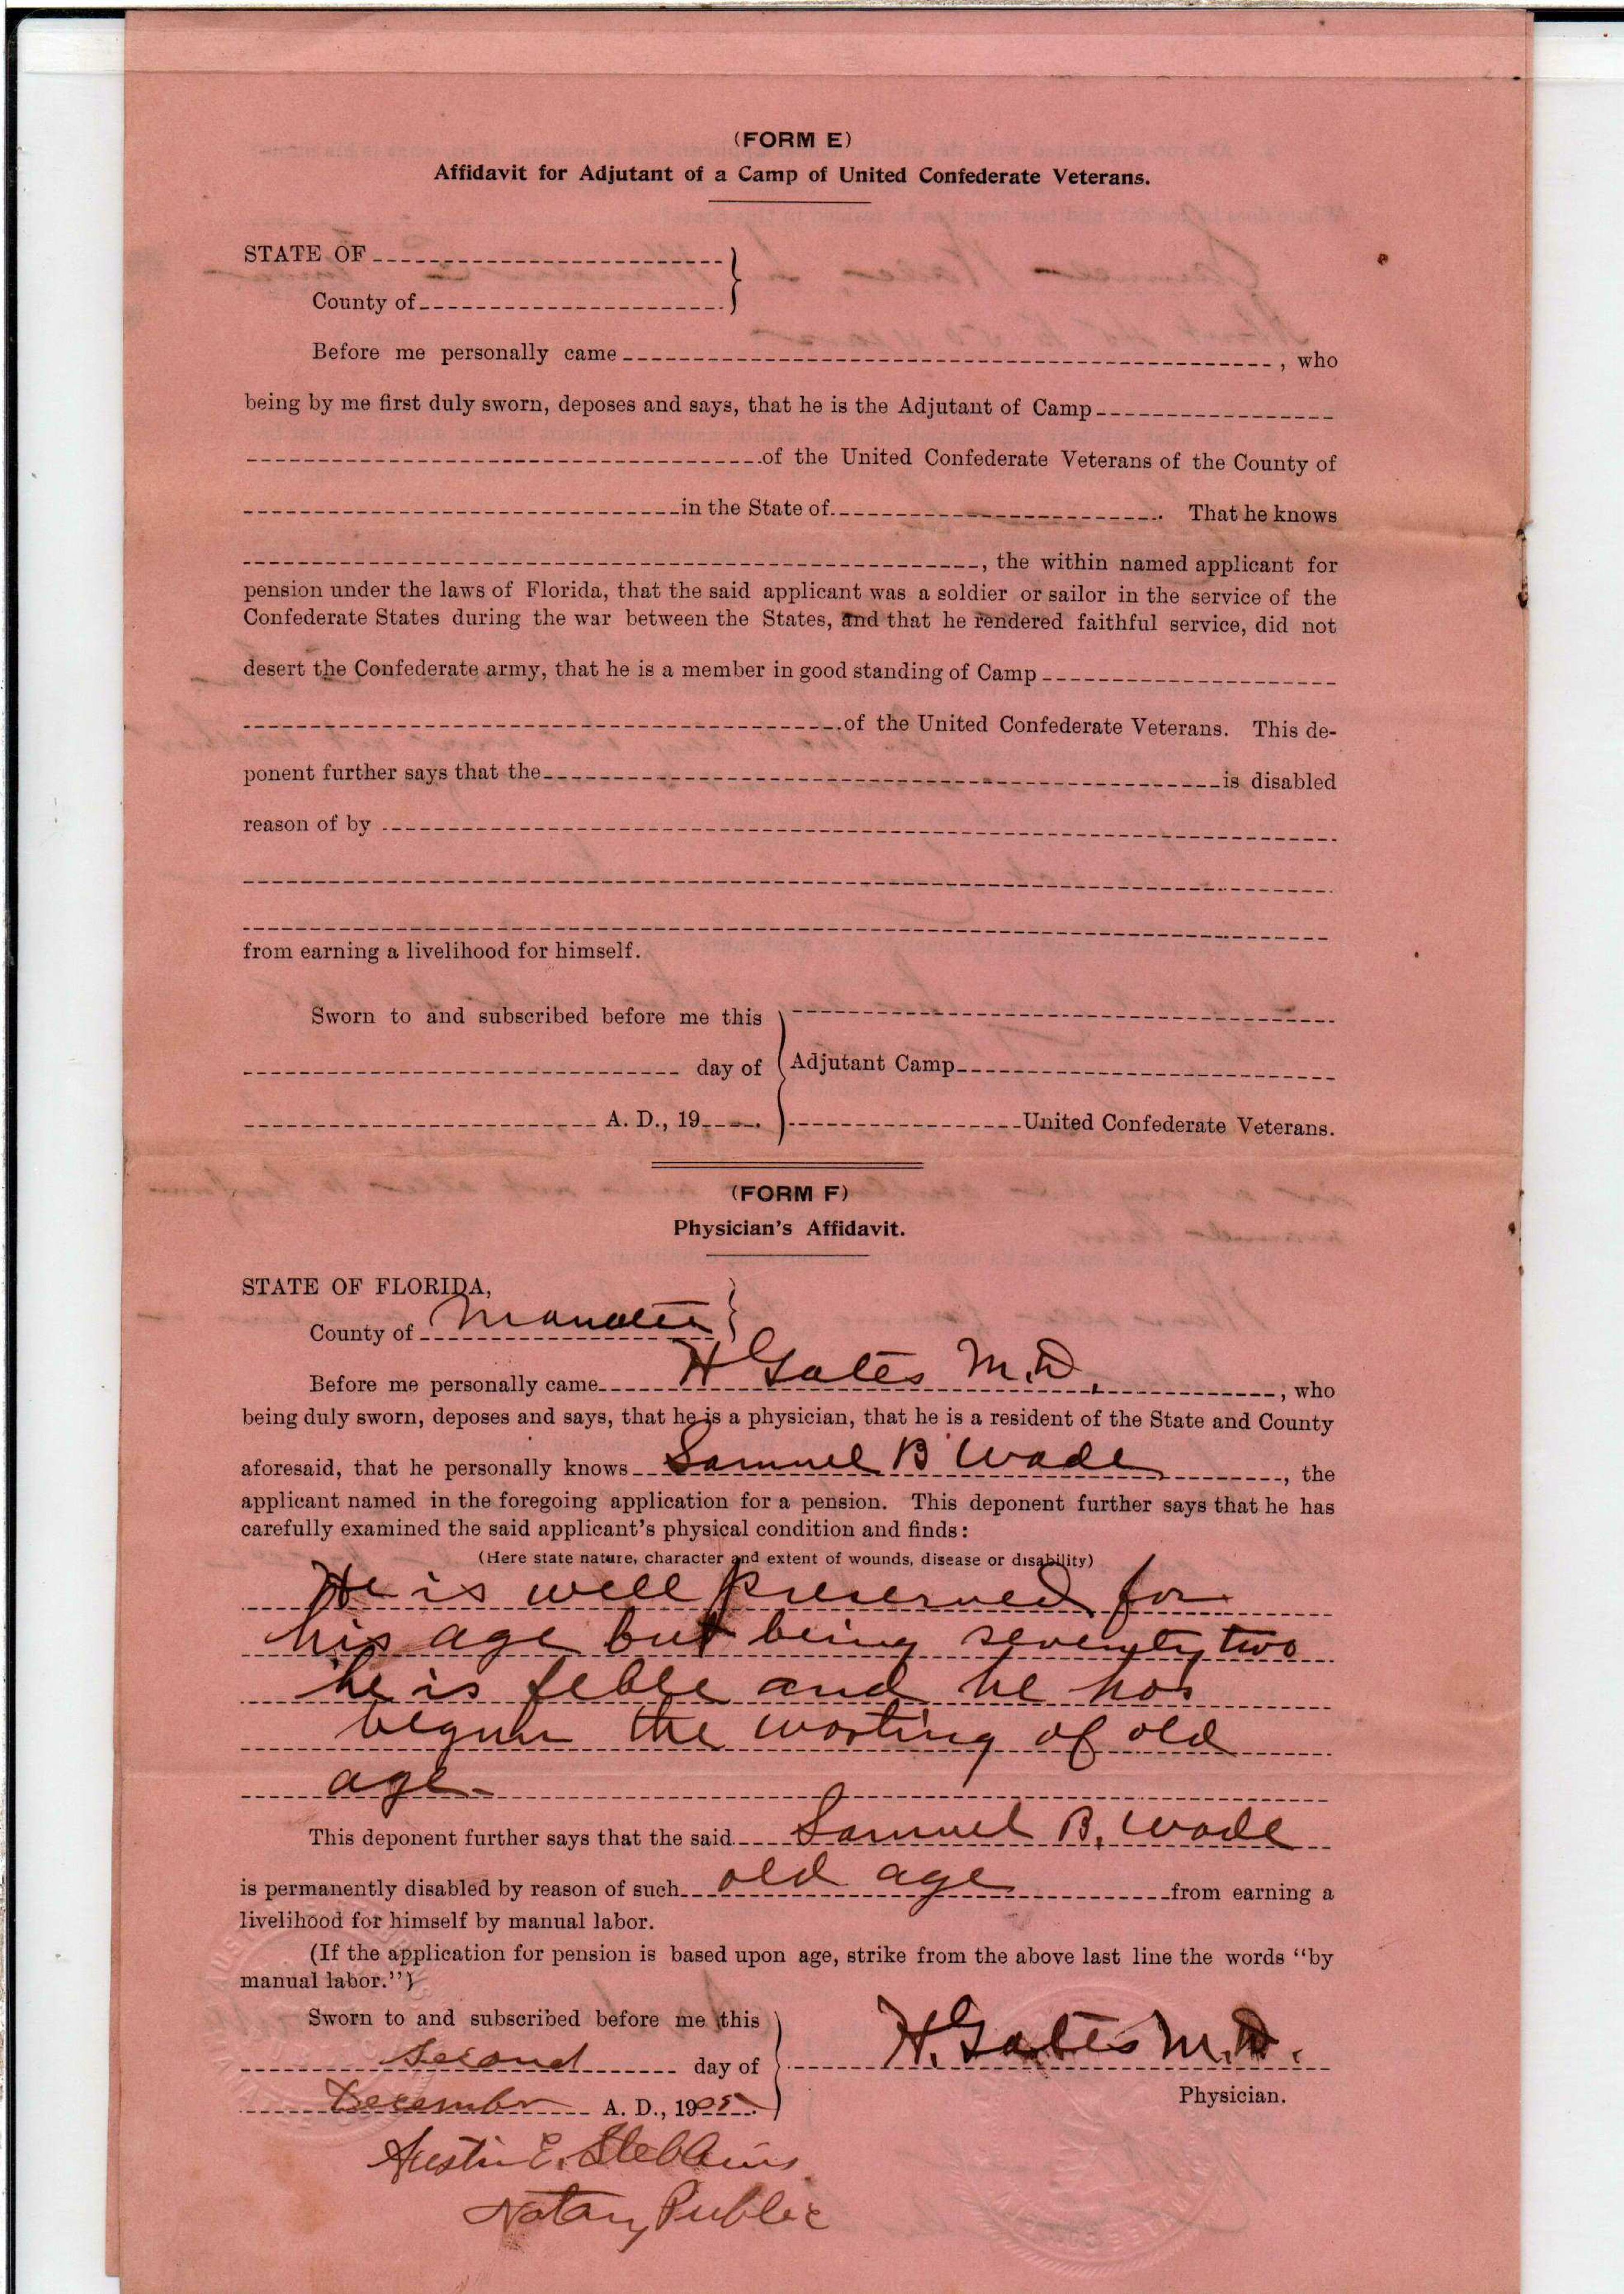 (FORM E)
Affidavit for Adjutant of a Camp of United Confederate Veterans.
STATE OF
County of
Before me personally came , who
being by me first duly sworn, deposes and says, that he is the Adjutant of Camp
of the United Confederate Veterans of the County of
in the State of . That he knows
, the within named applicant for
pension under the laws of Florida, that the said applicant was a soldier or sailor in the service of the
Confederate States during the war between the States, and that he rendered faithful service, did not
desert the Confederate army, that he is a member in good standing of Camp
of the United Confederate Veterans. This de-
ponent further says that the is disabled
reason of by
from earning a livelihood for himself.
Sworn to and subscribed before me this
day of Adjutant Camp
A. D., 19 . United Confederate Veterans.
(FORM F)
Physician's Affidavit.
STATE OF FLORIDA,
County of Manatee
Before me personally came H Gates M.D. , who
being duly sworn, deposes and says, that he is a physician, that he is a resident of the State and County
aforesaid, that he personally knows Samuel B Wade , the
applicant named in the foregoing application for a pension. This deponent further says that he has
carefully examined the said applicant's physical condition and finds:
(Here state nature, character and extent of wounds, disease or disability)
He is well preserved for
his age but being seventy two
he is feble and he has
begun the wasting of old
age-
This deponent further says that the said Samuel B. Wade
is permanently disabled by reason of such old age from earning a
livelihood for himself by manual labor.
(If the application for pension is based upon age, strike from the above last line the words "by
manual labor.")
Sworn to and subscribed before me this
Second day of H. Gates M.D.
December A. D., 1905. Physician.
Austin E. Stebbins
Notary Public